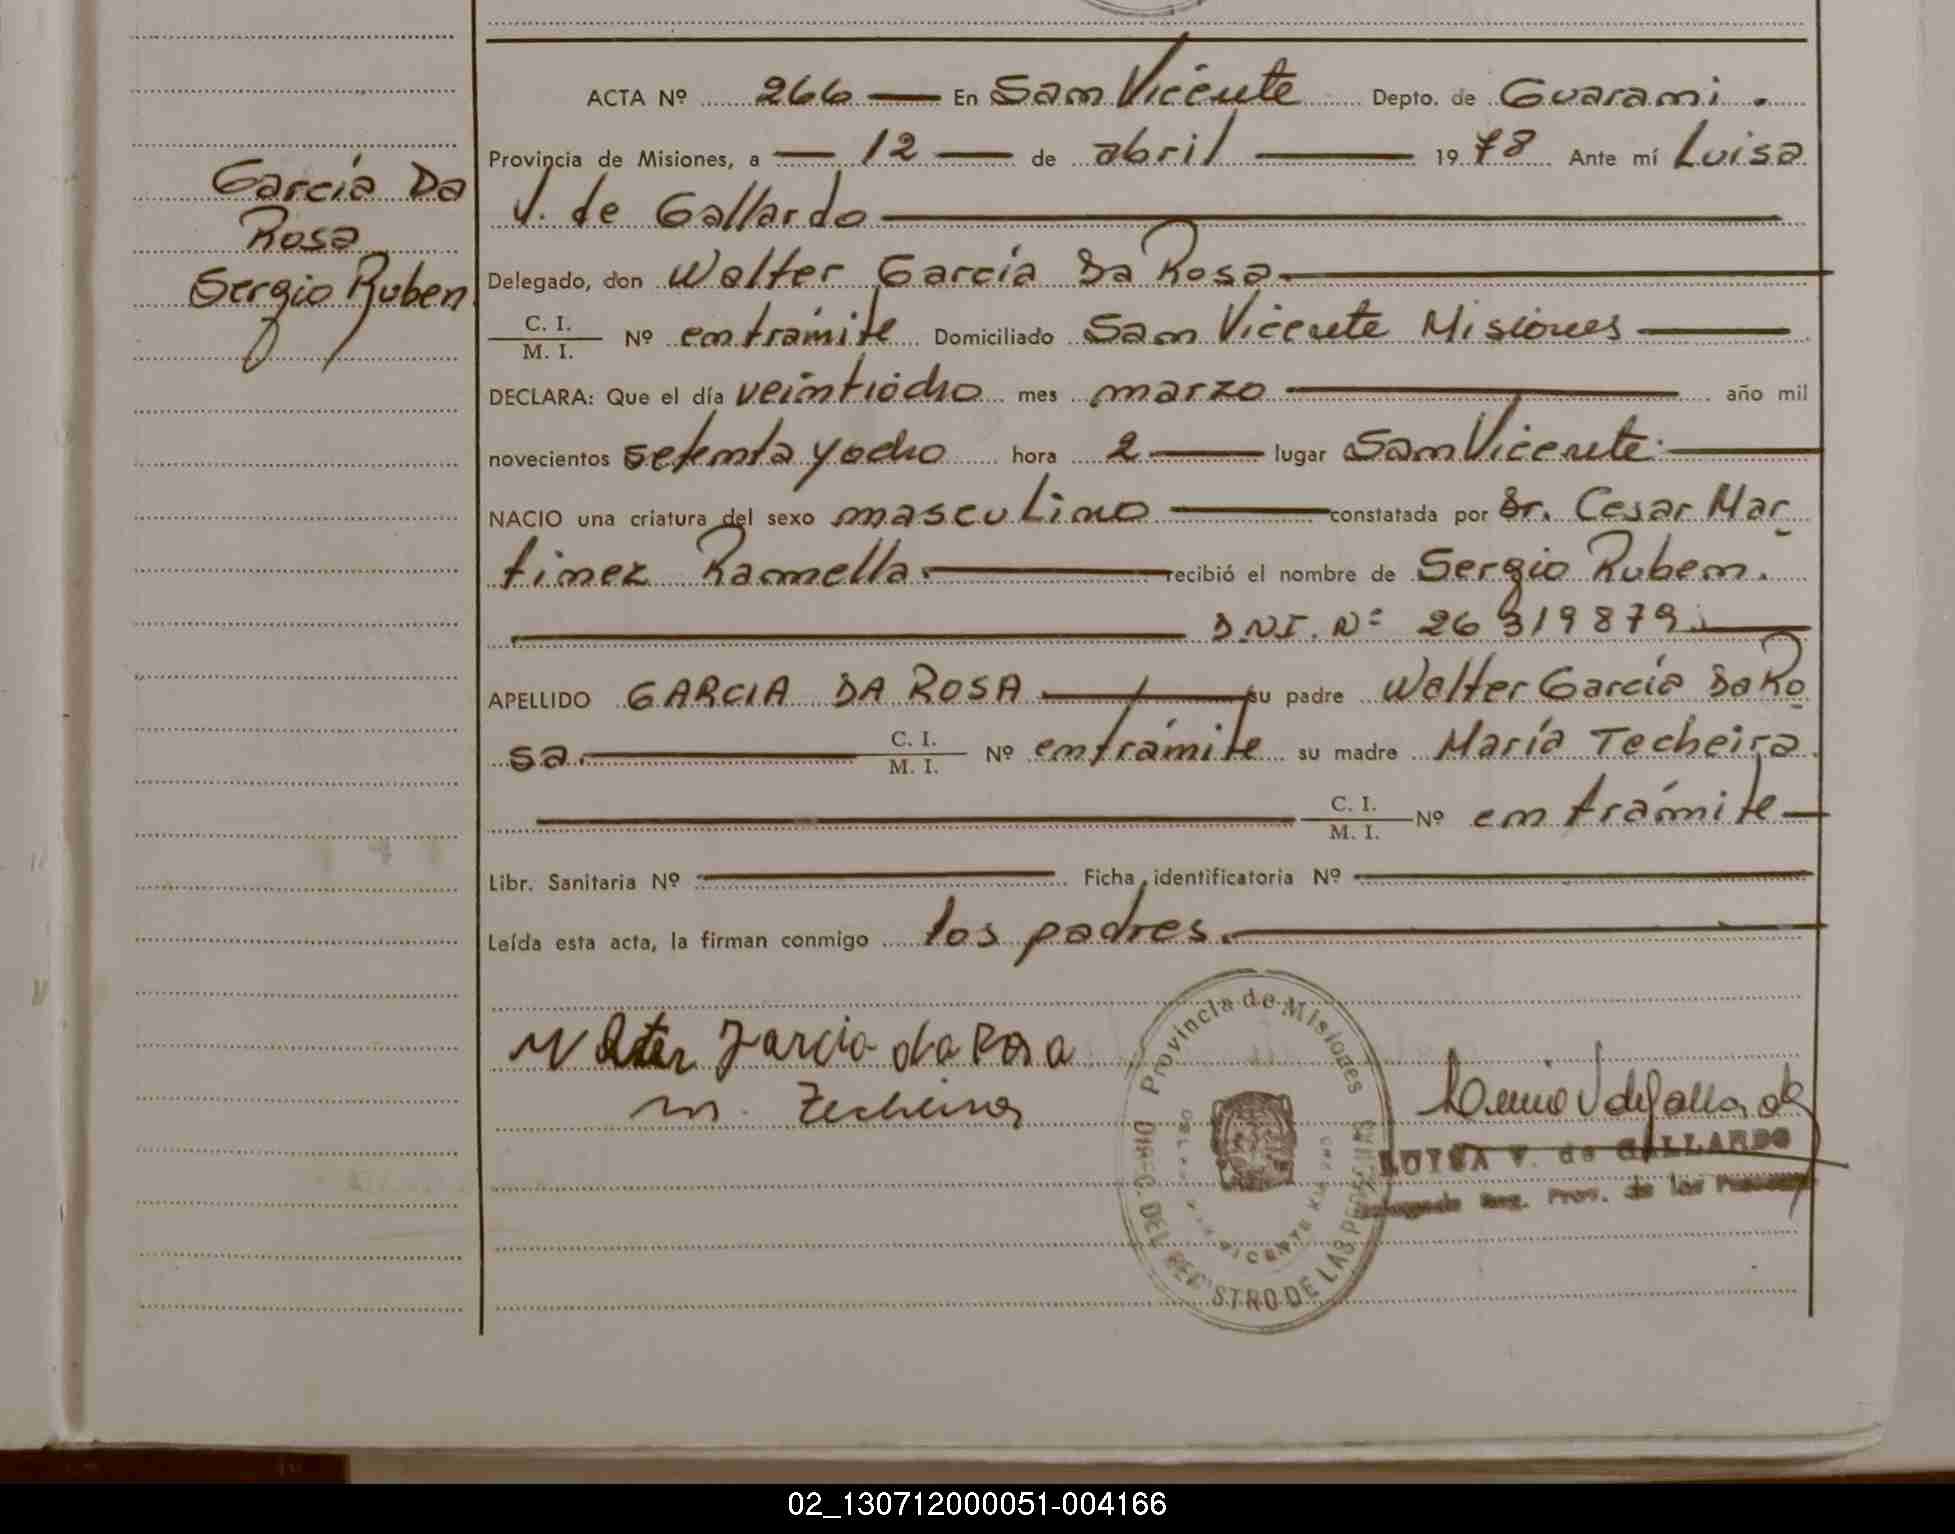 ACTA Nº 266 En San Vicente Depto. de Guarani.
Provincia de Misiones, a 12 de abril 1978 Ante mí Luisa
V. de Gallardo
García Da
Rosa
Sergio Ruben
Delegado, don Walter García Da Rosa.
C. I.
M. I. Nº en trámite Domiciliado San Vicente Misiones
DECLARA: Que el día veintiócho mes marzo año mil
novecientos setenta y ocho hora 2 lugar San Vicente.
NACIO una criatura del sexo masculino constatada por Dr. Cesar Mar
tinez Ramella. recibió el nombre de Sergio Ruben.
D.N.I. Nº 26 319879.
APELLIDO GARCIA DA ROSA su padre Walter García Da Ro
sa. C. I.
M. I. Nº en trámite su madre María Techeira.
C. I.
M. I. Nº en trámite
Libr. Sanitaria Nº Ficha identificatoria Nº
Leída esta acta, la firman conmigo los padres.
Walter Garcia da Rosa
m. Techeira
Provincia de Misiones
DIREC. DEL REGISTRO DE LAS PERSONAS
LUISA V. de GALLARDO
Reg. Prov. de las
02_130712000051-004166